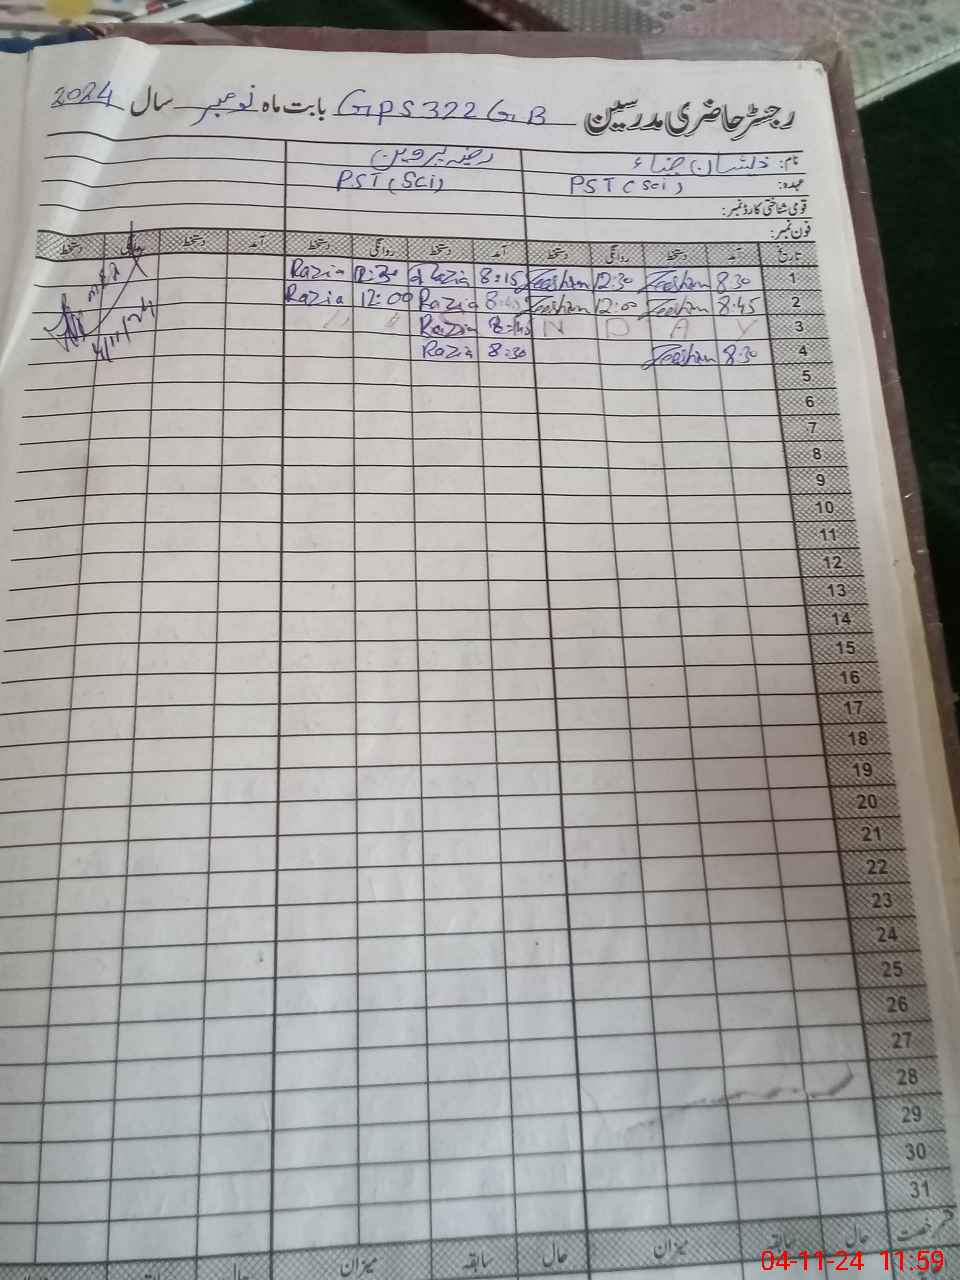 رجسٹر حاضری مدرسین GPS 322 GB بابت ماہ نومبر سال 2024
نام: ذیشان ضیاء رضیہ پروین
عہدہ: PST (Sci) PST (Sci)
قومی شناختی کارڈ نمبر:
فون نمبر:
تاریخ آمد دستخط روانگی دستخط آمد دستخط روانگی دستخط آمد دستخط روانگی دستخط
1 8:30 Zeeshan 12:30 Zeeshan 8:15 Razia 12:30 Razia
2 8:45 Zeeshan 12:00 Zeeshan 8:45 Razia 12:00 Razia
3 S U N D A Y 8:45 Razia
4 8:30 Zeeshan 8:30 Razia
4/11/24
5
6
7
8
9
10
11
12
13
14
15
16
17
18
19
20
21
22
23
24
25
26
27
28
29
30
31
رخصت حال سابقہ میزان حال سابقہ میزان حال
04-11-24 11:59